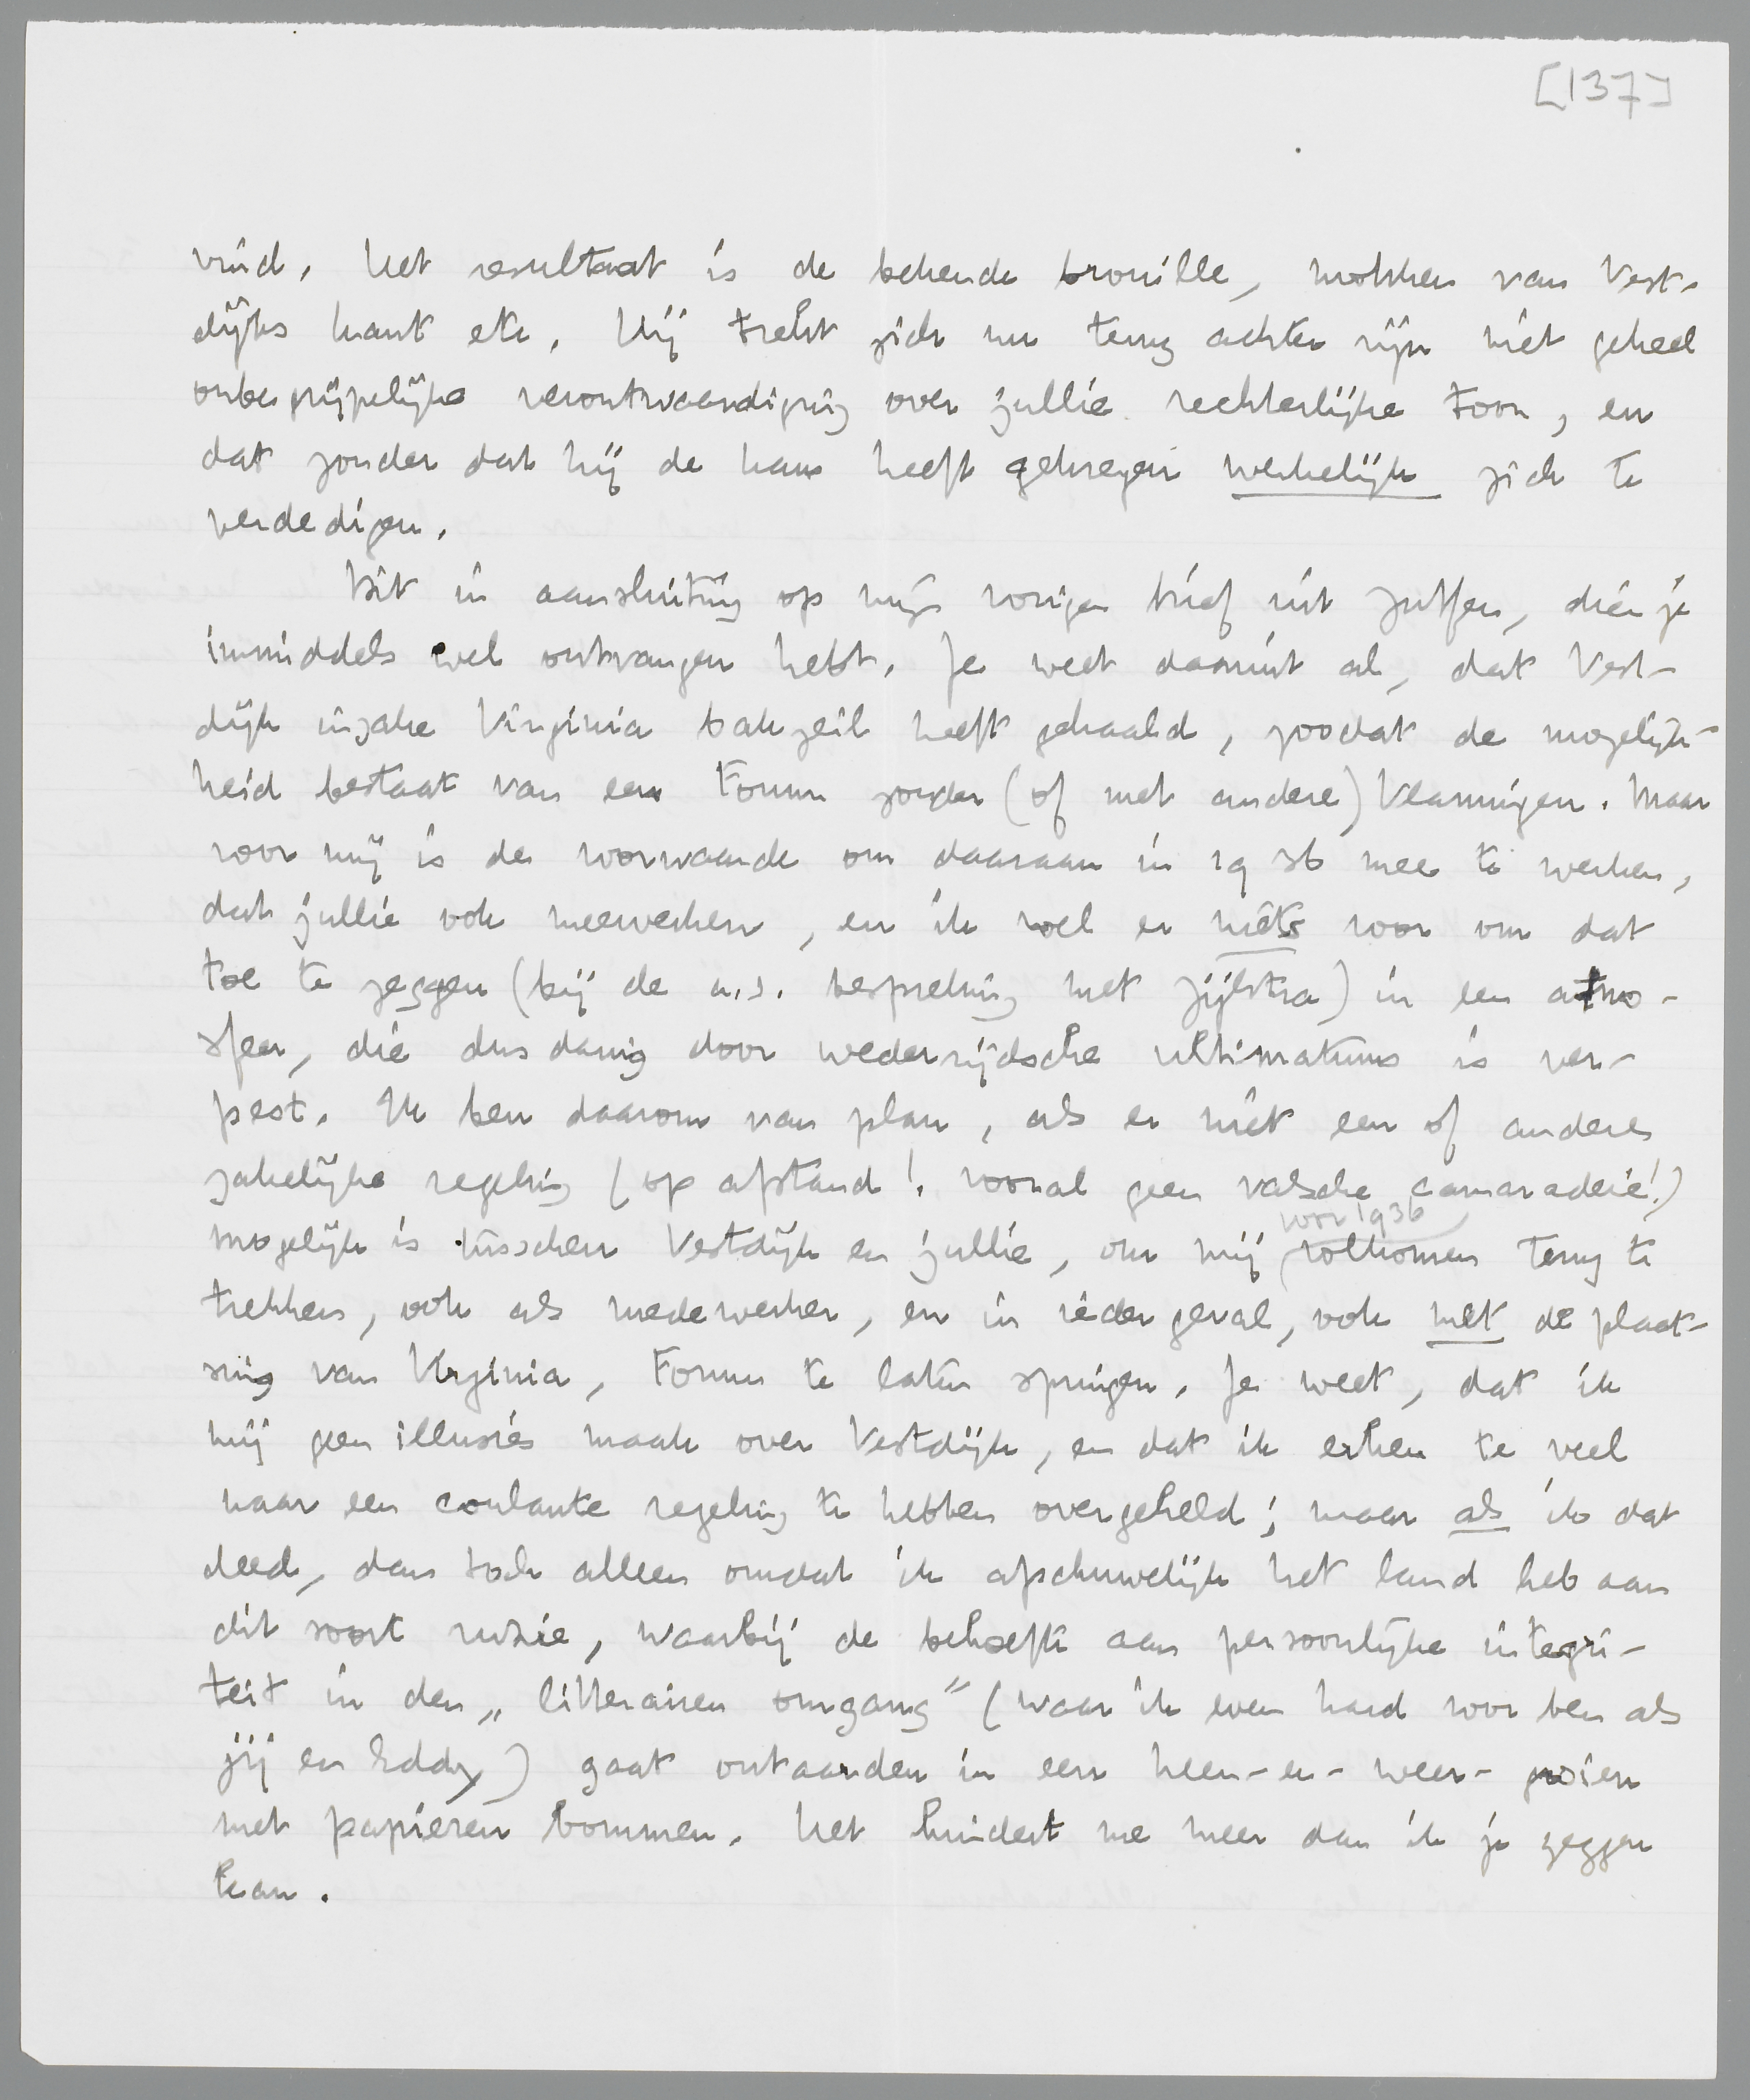 [137]
vind. Het resultaat is de bekende brouille, mokken van Vest-
dijks kant etc. Hij trekt zich nu terug achter zijn niet geheel
onbegrijpelijke verontwaardiging over jullie rechterlijke toon, en
dat zonder dat hij de kans heeft gekregen werkelijk zich te
verdedigen.
Dit in aansluiting op mijn vorigen brief uit Zutfen, dien je
inmiddels wel ontvangen hebt. Je weet daaruit al, dat Vest-
dijk inzake Virginia bakzeil heeft gehaald, zoodat de mogelijk-
heid bestaat van een Forum zonder (of met andere) Vlamingen. Maar
voor mij is de voorwaarde om daaraan in 1936 mee te werken,
dat jullie ook meewerken, en ik voel er niets voor om dat
toe te zeggen (bij de a.s. bespreking met Zijlstra) in een atmo-
sfeer, die dusdanig door wederzijdsche ultimatums is ver-
pest. Ik ben daarom van plan, als er niet een of andere
zakelijke regeling (op afstand! vooral geen valsche camaraderie!)
mogelijk is tusschen Vestdijk en jullie, om mij voor 1936 volkomen terug te
trekken, ook als medewerker, en in ieder geval, ook met de plaat-
sing van Virginia, Forum te laten springen. Je weet, dat ik
mij geen illusies maak over Vestdijk, en dat ik erken te veel
naar een coulante regeling te hebben overgeheld; maar als ik dat
deed, dan toch alleen omdat ik afschuwelijk het land heb aan
dit soort ruzie, waarbij de behoefte aan persoonlijke integri-
teit in den „litterairen omgang" (waar ik even hard voor ben als
jij en Eddy) gaat ontaarden in een heen-en-weer-gooien
met papieren bommen. Het hindert me meer dan ik je zeggen
kan.